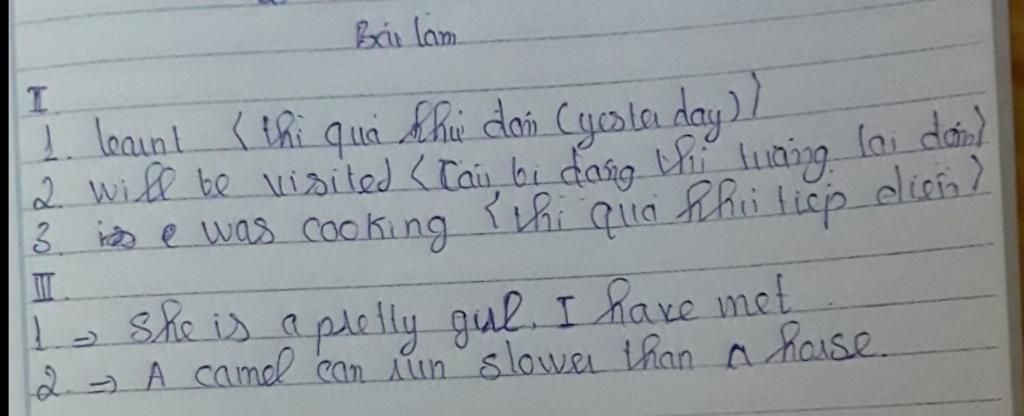 Bài làm
I
1. learnt (thì quá khứ đơn (yesterday))
2 will be visited (Câu bị động thì tương lai đơn)
3. e was cooking (thì quá khứ tiếp diễn)
III.
1 ⇒ She is a pretty girl. I have met
2 ⇒ A camel can run slower than a horse.